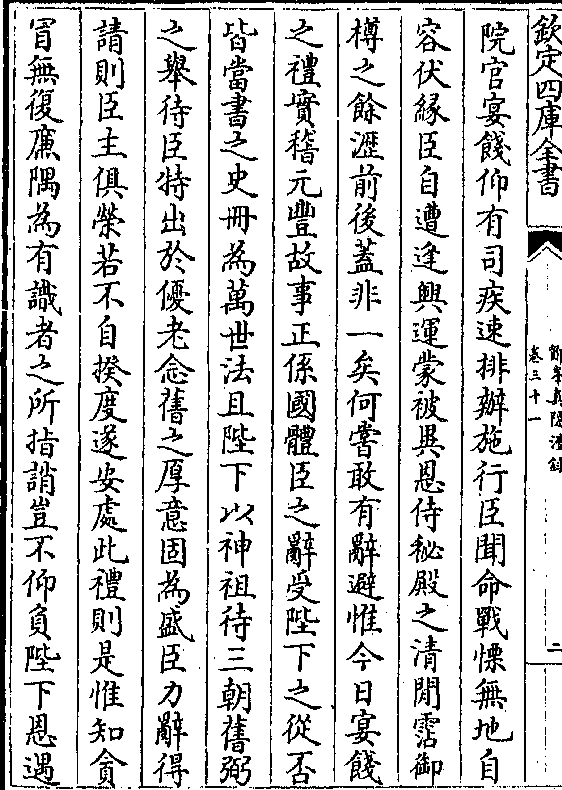 欽定四庫全書
卷三十一
二
院官宴餞仰有司疾速排辦施行臣聞命戰慄無地自
容伏緣臣自遭逢興運蒙被異恩侍秘殿之清閒霑御
樽之餘瀝前後蓋非一矣何嘗敢有辭避惟今日宴餞
之禮實稽元豐故事正係國體臣之辭受陛下之從否
皆當書之史冊為萬世法且陛下以神祖待三朝舊弼
之舉待臣特出於優老念舊之厚意固為盛臣力辭得
請則臣主俱榮若不自揆度遂安處此禮則是惟知貪
冐無復廉隅為有識者之所指誚豈不仰負陛下恩遇